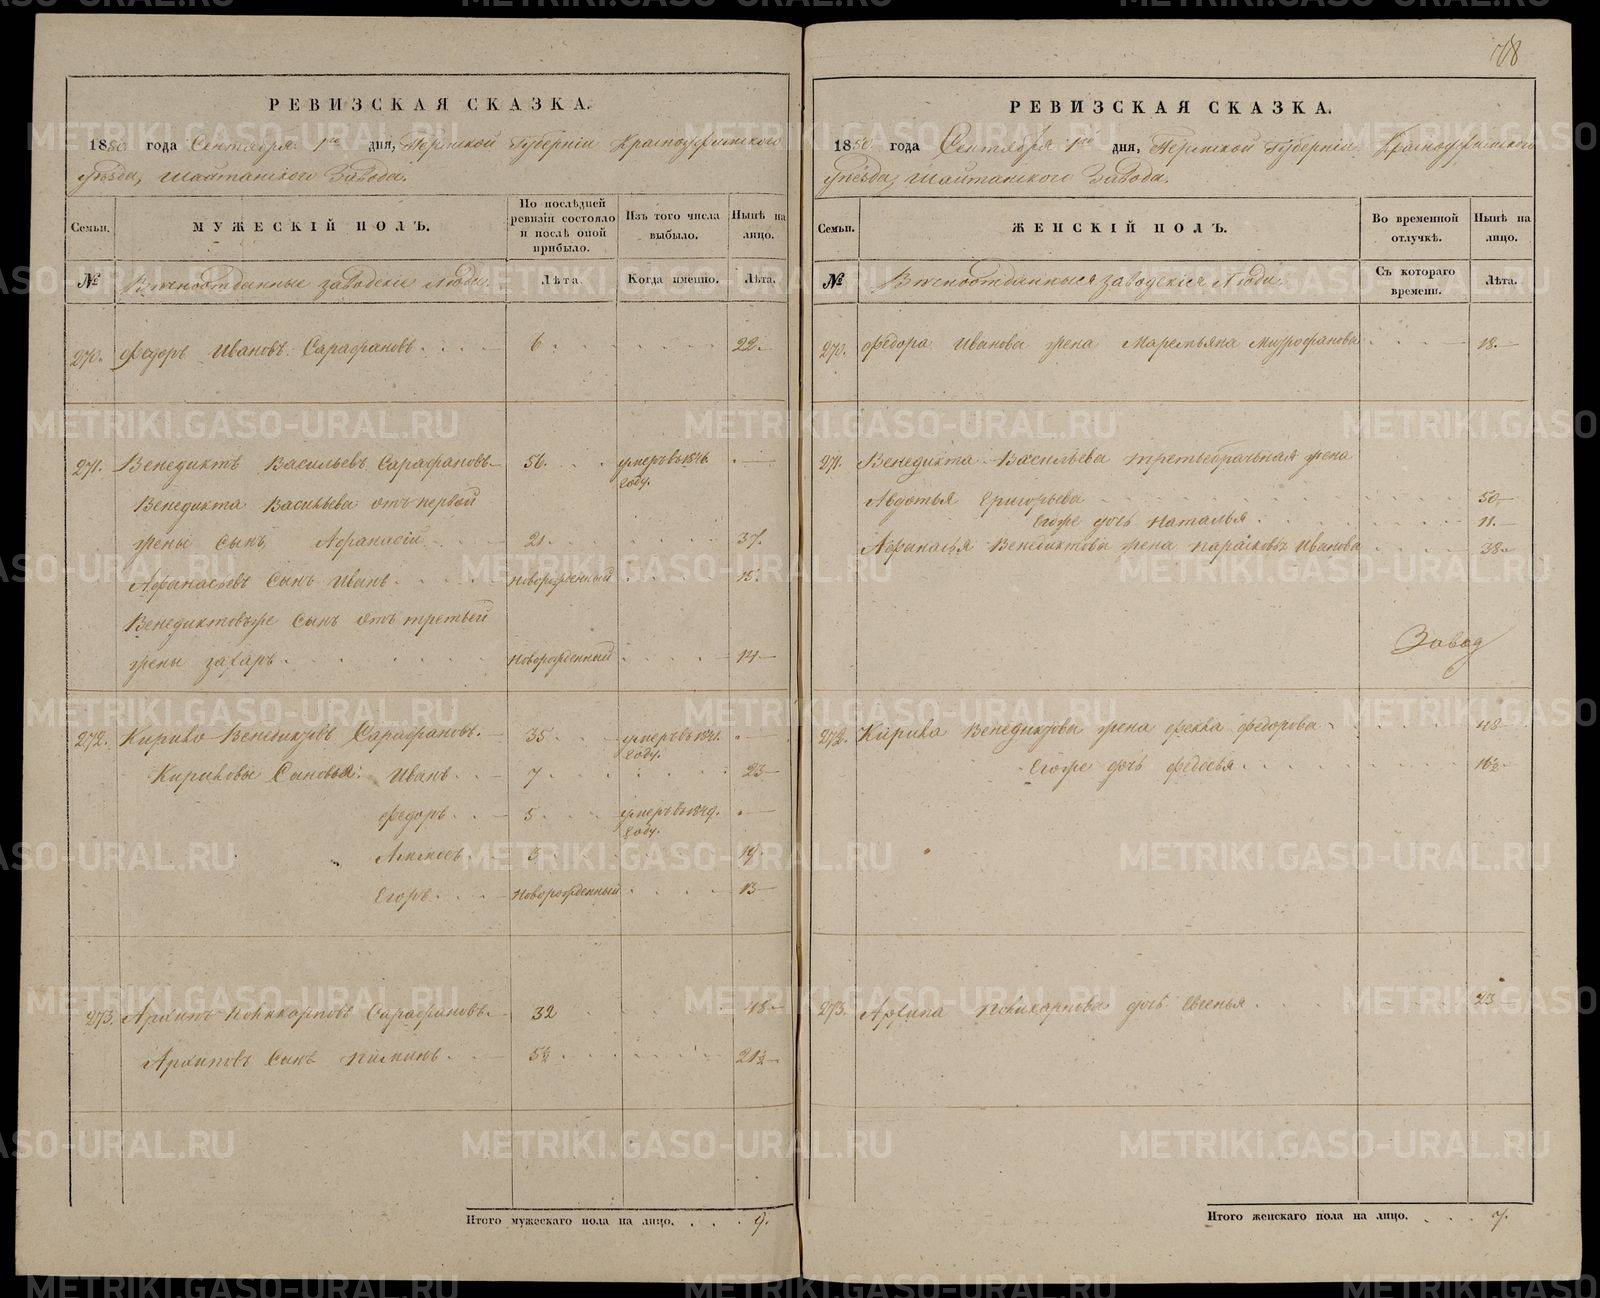 78
РЕВИЗСКАЯ СКАЗКА.
1850 года Сентября 1го дня, Пермской Губерніи Красноуфимского
Уѣзда, Шайтанского Завода.
Семьи.
МУЖЕСКІЙ ПОЛЪ.
По послѣдней ревизіи состояло и послѣ оной прибыло.
Изъ того числа выбыло.
Нынѣ на лицо.
№
Вѣчноотданные заводскіе люди.
Лѣта.
Когда именно.
Лѣта.
270. Федоръ Ивановъ Сарафановъ 6 22
271. Венедиктъ Васильевъ Сарафановъ 56 умеръ въ 1846 году.
Венедикта Васильева отъ первой
жены сынъ Афанасій 21 37
Афанасьевъ Сынъ Иванъ новорожденный 15
Венедиктовъже Сынъ отъ третьей
жены захаръ новорожденный 14
272. Кирико Венедиктовъ Сарафановъ 35 умеръ въ 1841 году.
Кириковы Сыновья: Иванъ 7 23
Федоръ 5 умеръ въ 1849 году.
3 19
Егоръ Новорожденный 13
273. Архипъ Поликарповъ Сарафановъ 32 48
Архиповъ Сынъ Пименъ 5½ 21½
Итого мужескаго пола на лицо. 9.
РЕВИЗСКАЯ СКАЗКА.
1850 года Сентября 1го дня, Пермской Губерніи Красноуфимского
Уѣзда, Шайтанского Завода.
Семьи.
ЖЕНСКІЙ ПОЛЪ.
Во временной отлучкѣ.
Нынѣ на лицо.
№
Вѣчноотданныя заводскія Люди.
Съ котораго времени.
Лѣта.
270. Федора Иванова жена Маремьяна Митрофанова 18
271. Венедикта Васильева третьебрачная жена
Авдотья Григорьева 50
Егоже дочь Наталья 11
Афанасья Венедиктова жена Парасковья Иванова 38
Завод
272. Кирика Венедиктова жена Фекла Федорова 48
Егоже дочь Федосья 16½
273. Архипа Поликарпова дочь Евгенья 23
Итого женскаго пола на лицо. 7.
METRIKI.GASO-URAL.RU